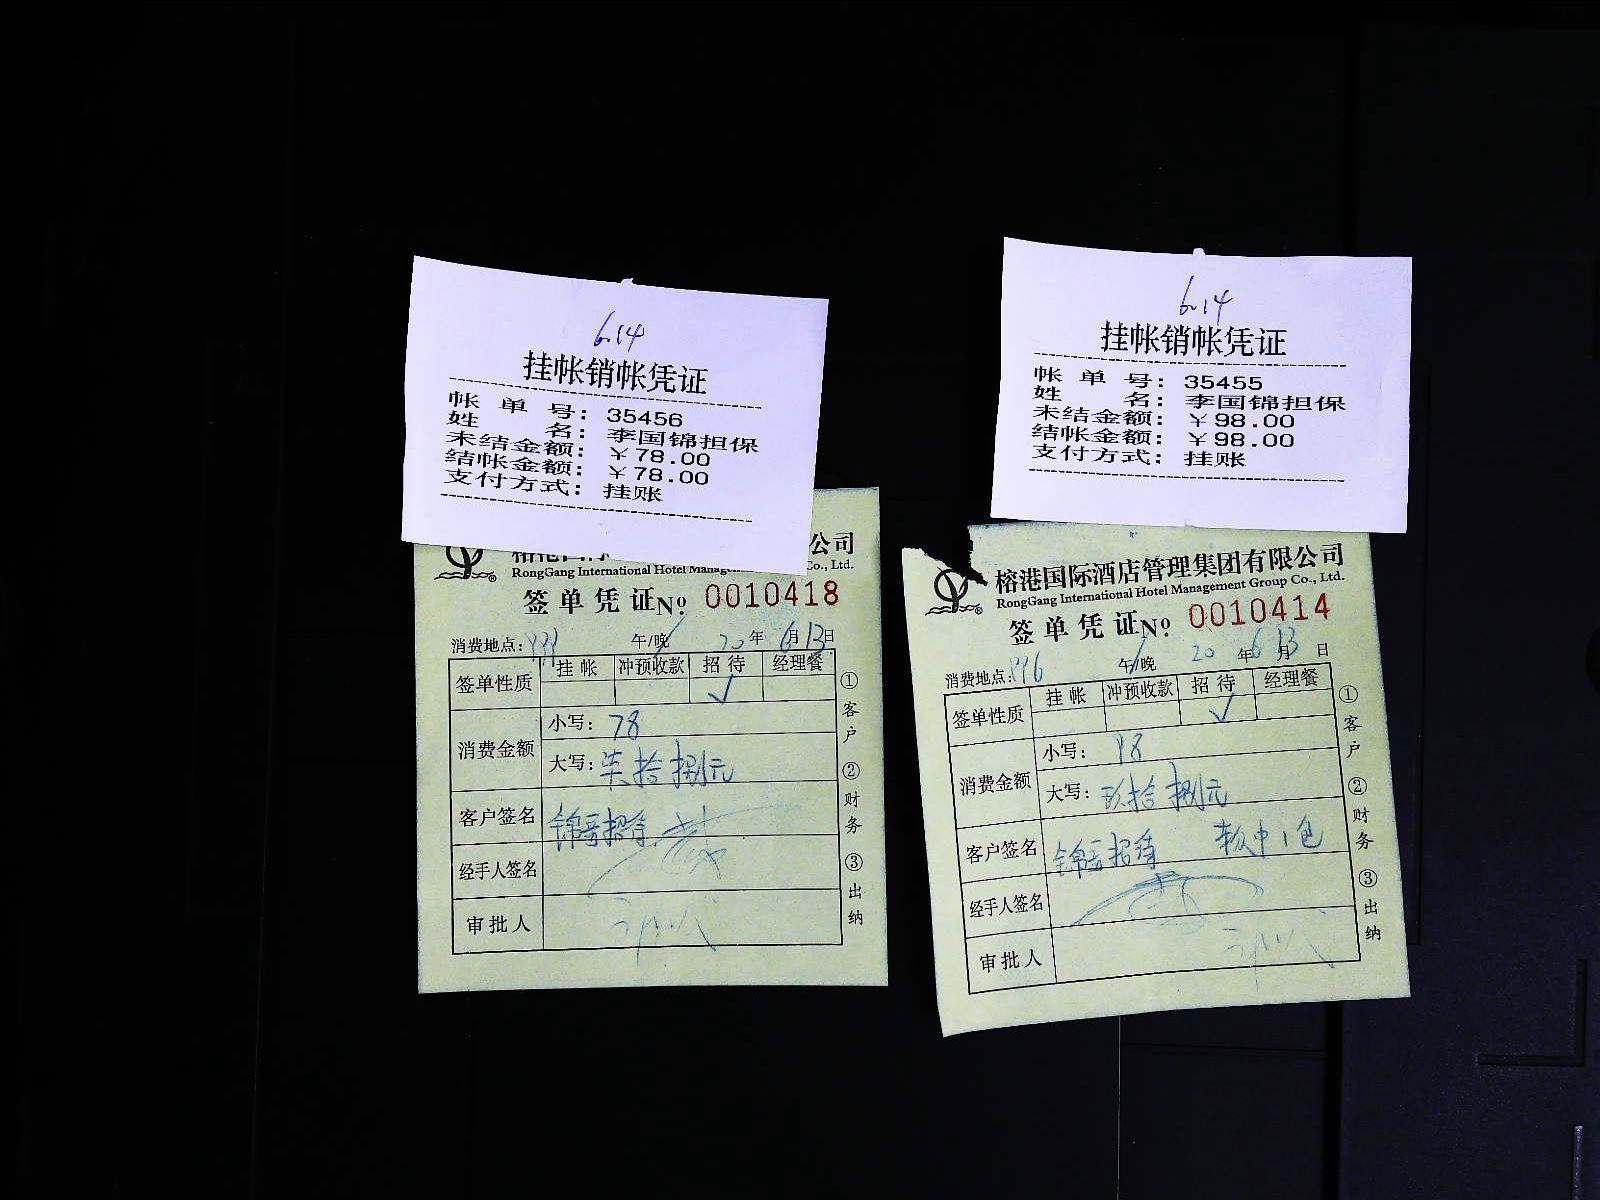 6.14
挂帐销帐凭证
帐单号：35456
姓名：李国锦担保
未结金额：￥78.00
结帐金额：￥78.00
支付方式：挂账
公司
RongGang International Hotel Co., Ltd.
签单凭证№ 0010418
消费地点：999 午/晚 20年6月13日
签单性质 挂帐 冲预收款 招待 经理餐
✓
消费金额 小写：78
大写：柒拾捌元
客户签名 锦哥招待
经手人签名
审批人
①客户 ②财务 ③出纳
6.14
挂帐销帐凭证
帐单号：35455
姓名：李国锦担保
未结金额：￥98.00
结帐金额：￥98.00
支付方式：挂账
榕港国际酒店管理集团有限公司
RongGang International Hotel Management Group Co., Ltd.
签单凭证№ 0010414
消费地点：996 午/晚 20年6月13日
签单性质 挂帐 冲预收款 招待 经理餐
✓
消费金额 小写：98
大写：玖拾捌元
客户签名 锦哥招待 软中1包
经手人签名
审批人
①客户 ②财务 ③出纳